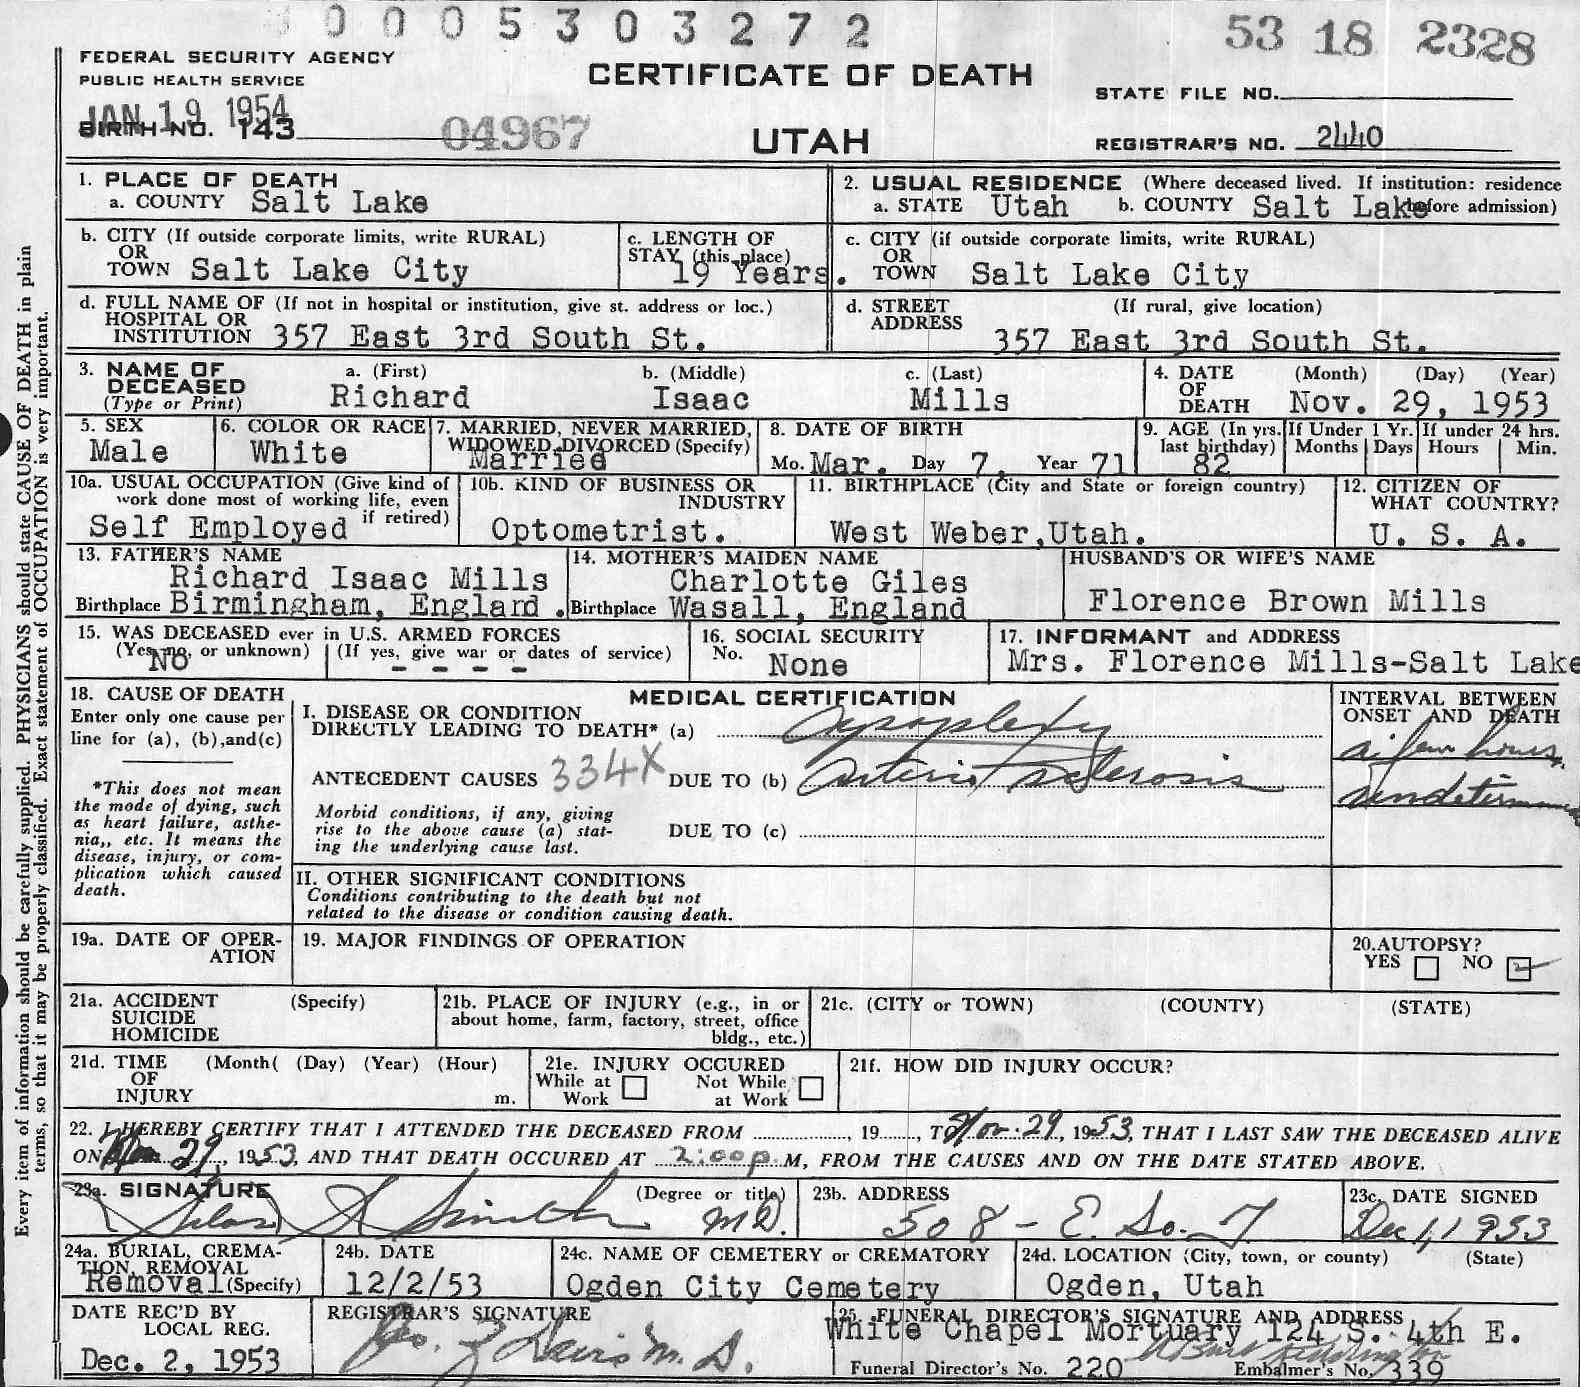 0005303272
53 18 2328
FEDERAL SECURITY AGENCY
PUBLIC HEALTH SERVICE
CERTIFICATE OF DEATH
STATE FILE NO.
JAN 19 1954
BIRTH NO. 143
04967
UTAH
REGISTRAR'S NO. 2440
1. PLACE OF DEATH
a. COUNTY Salt Lake
2. USUAL RESIDENCE (Where deceased lived. If institution: residence before admission)
a. STATE Utah b. COUNTY Salt Lake
b. CITY (If outside corporate limits, write RURAL)
OR
TOWN Salt Lake City
c. LENGTH OF
STAY (this place)
19 Years.
c. CITY (if outside corporate limits, write RURAL)
OR
TOWN Salt Lake City
d. FULL NAME OF (If not in hospital or institution, give st. address or loc.)
HOSPITAL OR
INSTITUTION 357 East 3rd South St.
d. STREET (If rural, give location)
ADDRESS
357 East 3rd South St.
3. NAME OF
DECEASED
(Type or Print)
a. (First) b. (Middle) c. (Last)
Richard Isaac Mills
4. DATE (Month) (Day) (Year)
OF
DEATH Nov. 29, 1953
5. SEX
Male
6. COLOR OR RACE
White
7. MARRIED, NEVER MARRIED,
WIDOWED, DIVORCED (Specify)
Married
8. DATE OF BIRTH
Mo. Mar. Day 7, Year 71
9. AGE (In yrs.
last birthday)
82
If Under 1 Yr.
Months Days
If under 24 hrs.
Hours Min.
10a. USUAL OCCUPATION (Give kind of
work done most of working life, even
if retired)
Self Employed
10b. KIND OF BUSINESS OR
INDUSTRY
Optometrist.
11. BIRTHPLACE (City and State or foreign country)
West Weber, Utah.
12. CITIZEN OF
WHAT COUNTRY?
U. S. A.
13. FATHER'S NAME
Richard Isaac Mills
Birthplace Birmingham, England.
14. MOTHER'S MAIDEN NAME
Charlotte Giles
Birthplace Wasall, England
HUSBAND'S OR WIFE'S NAME
Florence Brown Mills
15. WAS DECEASED ever in U.S. ARMED FORCES
(Yes, no, or unknown) (If yes, give war or dates of service)
No - - - -
16. SOCIAL SECURITY
No. None
17. INFORMANT and ADDRESS
Mrs. Florence Mills-Salt Lake
18. CAUSE OF DEATH
Enter only one cause per
line for (a), (b),and(c)
*This does not mean
the mode of dying, such
as heart failure, asthe-
nia,, etc. It means the
disease, injury, or com-
plication which caused
death.
MEDICAL CERTIFICATION
I. DISEASE OR CONDITION
DIRECTLY LEADING TO DEATH* (a) Apoplexy
ANTECEDENT CAUSES 334X DUE TO (b) Arterio sclerosis
Morbid conditions, if any, giving
rise to the above cause (a) stat-
ing the underlying cause last.
DUE TO (c)
INTERVAL BETWEEN
ONSET AND DEATH
a few hours
undetermined
II. OTHER SIGNIFICANT CONDITIONS
Conditions contributing to the death but not
related to the disease or condition causing death.
19a. DATE OF OPER-
ATION
19. MAJOR FINDINGS OF OPERATION
20. AUTOPSY?
YES NO
21a. ACCIDENT (Specify)
SUICIDE
HOMICIDE
21b. PLACE OF INJURY (e.g., in or
about home, farm, factory, street, office
bldg., etc.)
21c. (CITY or TOWN) (COUNTY) (STATE)
21d. TIME (Month( (Day) (Year) (Hour)
OF
INJURY m.
21e. INJURY OCCURED
While at Not While
Work at Work
21f. HOW DID INJURY OCCUR?
22. I HEREBY CERTIFY THAT I ATTENDED THE DECEASED FROM , 19 , TO Nov. 29, 1953, THAT I LAST SAW THE DECEASED ALIVE
ON Nov 29, 1953, AND THAT DEATH OCCURED AT 2:00p M, FROM THE CAUSES AND ON THE DATE STATED ABOVE.
23a. SIGNATURE (Degree or title)
Silas S Smith M.D.
23b. ADDRESS
508 - E. So. T
23c. DATE SIGNED
Dec 1, 1953
24a. BURIAL, CREMA-
TION, REMOVAL
Removal (Specify)
24b. DATE
12/2/53
24c. NAME OF CEMETERY or CREMATORY
Ogden City Cemetery
24d. LOCATION (City, town, or county) (State)
Ogden, Utah
DATE REC'D BY
LOCAL REG.
Dec. 2, 1953
REGISTRAR'S SIGNATURE
Geo. Z Davis M. D.
25. FUNERAL DIRECTOR'S SIGNATURE AND ADDRESS
White Chapel Mortuary 124 S. 4th E.
Funeral Director's No. 220 Embalmer's No. 339
Every item of information should be carefully supplied. PHYSICIANS should state CAUSE OF DEATH in plain
terms, so that it may be properly classified. Exact statement of OCCUPATION is very important.